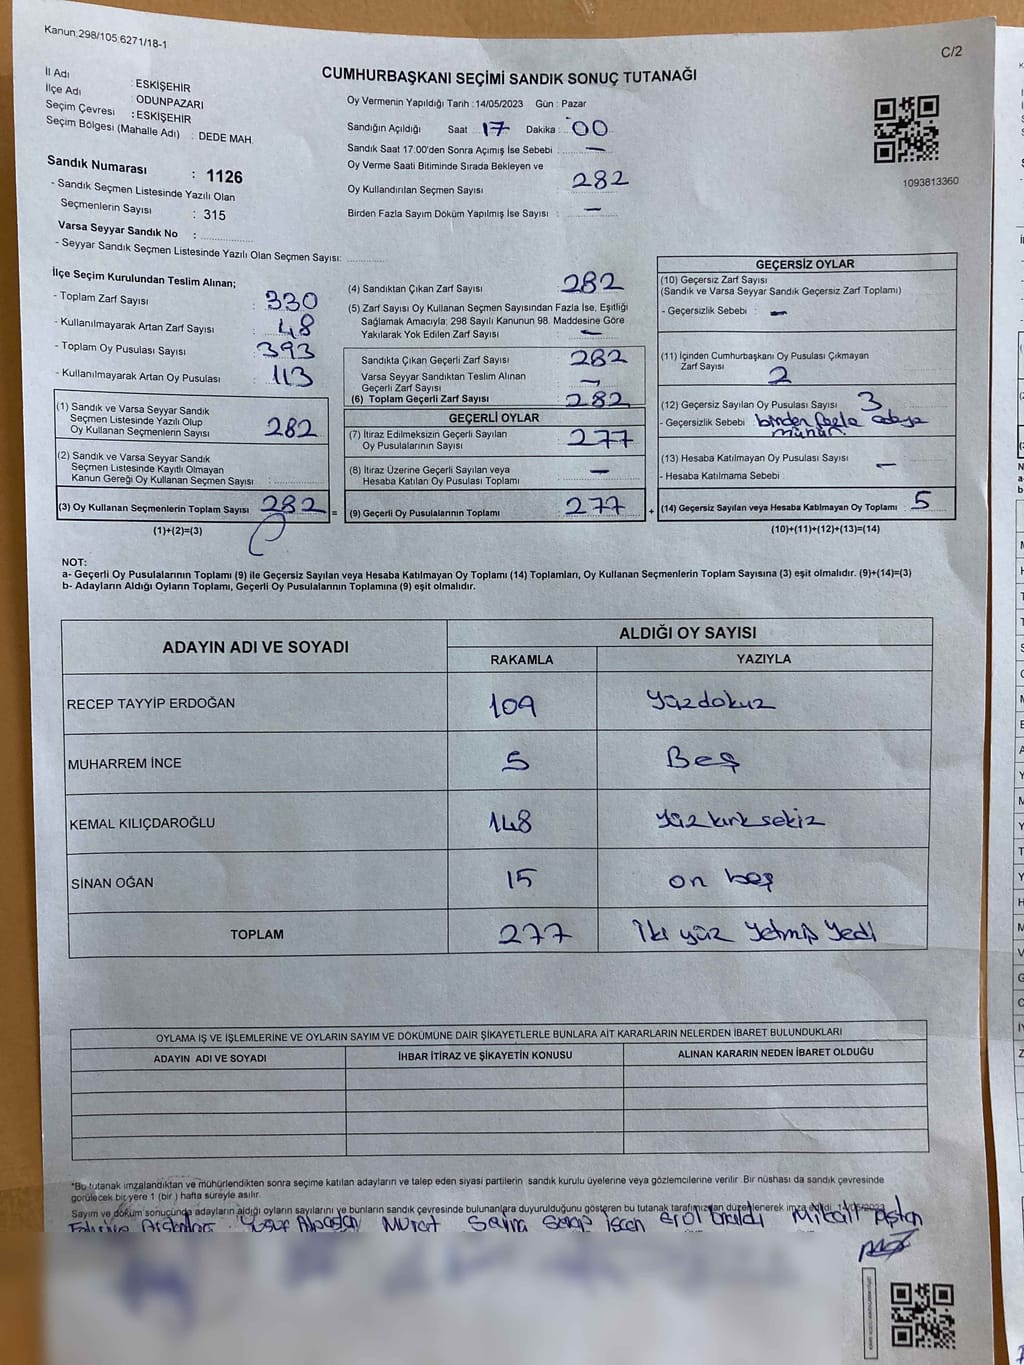 Kanun:298/105.6271/18-1
C/2
CUMHURBAŞKANI SEÇİMİ SANDIK SONUÇ TUTANAĞI
İl Adı : ESKİŞEHİR
İlçe Adı : ODUNPAZARI
Seçim Çevresi : ESKİŞEHİR
Seçim Bölgesi (Mahalle Adı) : DEDE MAH.
Oy Vermenin Yapıldığı Tarih :14/05/2023 Gün : Pazar
Sandığın Açıldığı Saat 17 Dakika : 00
Sandık Saat 17:00'den Sonra Açımış İse Sebebi : —
Oy Verme Saati Bitiminde Sırada Bekleyen ve
Oy Kullandırılan Seçmen Sayısı 282
Birden Fazla Sayım Döküm Yapılmış İse Sayısı : —
1093813360
Sandık Numarası : 1126
- Sandık Seçmen Listesinde Yazılı Olan
Seçmenlerin Sayısı : 315
Varsa Seyyar Sandık No :
- Seyyar Sandık Seçmen Listesinde Yazılı Olan Seçmen Sayısı:
İlçe Seçim Kurulundan Teslim Alınan;
- Toplam Zarf Sayısı : 330
- Kullanılmayarak Artan Zarf Sayısı : 48
- Toplam Oy Pusulası Sayısı : 393
- Kullanılmayarak Artan Oy Pusulası : 113
(1) Sandık ve Varsa Seyyar Sandık
Seçmen Listesinde Yazılı Olup
Oy Kullanan Seçmenlerin Sayısı : 282
(2) Sandık ve Varsa Seyyar Sandık
Seçmen Listesinde Kayıtlı Olmayan
Kanun Gereği Oy Kullanan Seçmen Sayısı :
(3) Oy Kullanan Seçmenlerin Toplam Sayısı : 282
(1)+(2)=(3)
=
(4) Sandıktan Çıkan Zarf Sayısı : 282
(5) Zarf Sayısı Oy Kullanan Seçmen Sayısından Fazla İse, Eşitliği
Sağlamak Amacıyla; 298 Sayılı Kanunun 98. Maddesine Göre
Yakılarak Yok Edilen Zarf Sayısı : —
Sandıkta Çıkan Geçerli Zarf Sayısı : 282
Varsa Seyyar Sandıktan Teslim Alınan
Geçerli Zarf Sayısı : —
(6) Toplam Geçerli Zarf Sayısı : 282
GEÇERLİ OYLAR
(7) İtiraz Edilmeksizin Geçerli Sayılan
Oy Pusulalarının Sayısı : 277
(8) İtiraz Üzerine Geçerli Sayılan veya
Hesaba Katılan Oy Pusulası Toplamı : —
(9) Geçerli Oy Pusulalarının Toplamı : 277
+
GEÇERSİZ OYLAR
(10) Geçersiz Zarf Sayısı
(Sandık ve Varsa Seyyar Sandık Geçersiz Zarf Toplamı)
- Geçersizlik Sebebi : —
(11) İçinden Cumhurbaşkanı Oy Pusulası Çıkmayan
Zarf Sayısı : 2
(12) Geçersiz Sayılan Oy Pusulası Sayısı : 3
- Geçersizlik Sebebi : birden fazla adaya
mühür
(13) Hesaba Katılmayan Oy Pusulası Sayısı : —
- Hesaba Katılmama Sebebi :
(14) Geçersiz Sayılan veya Hesaba Katılmayan Oy Toplamı : 5
(10)+(11)+(12)+(13)=(14)
NOT:
a- Geçerli Oy Pusulalarının Toplamı (9) ile Geçersiz Sayılan veya Hesaba Katılmayan Oy Toplamı (14) Toplamları, Oy Kullanan Seçmenlerin Toplam Sayısına (3) eşit olmalıdır. (9)+(14)=(3)
b- Adayların Aldığı Oyların Toplamı, Geçerli Oy Pusulalarının Toplamına (9) eşit olmalıdır.
ADAYIN ADI VE SOYADI ALDIĞI OY SAYISI
RAKAMLA YAZIYLA
RECEP TAYYİP ERDOĞAN 109 Yüzdokuz
MUHARREM İNCE 5 Beş
KEMAL KILIÇDAROĞLU 148 yüz kırk sekiz
SİNAN OĞAN 15 on beş
TOPLAM 277 İki yüz yetmiş yedi
OYLAMA İŞ VE İŞLEMLERİNE VE OYLARIN SAYIM VE DÖKÜMÜNE DAİR ŞİKAYETLERLE BUNLARA AİT KARARLARIN NELERDEN İBARET BULUNDUKLARI
ADAYIN ADI VE SOYADI İHBAR İTİRAZ VE ŞİKAYETİN KONUSU ALINAN KARARIN NEDEN İBARET OLDUĞU
*Bu tutanak imzalandıktan ve mühürlendikten sonra seçime katılan adayların ve talep eden siyasi partilerin sandık kurulu üyelerine veya gözlemcilerine verilir. Bir nüshası da sandık çevresinde
görülecek bir yere 1 (bir ) hafta süreyle asılır.
Sayım ve döküm sonucunda adayların aldığı oyların sayılarını ve bunların sandık çevresinde bulunanlara duyurulduğunu gösteren bu tutanak tarafımızdan düzenlenerek imza edildi. 14/05/2023
Yusuf Alpaslan Murat Serap İşcan Erol Mikail Aslan